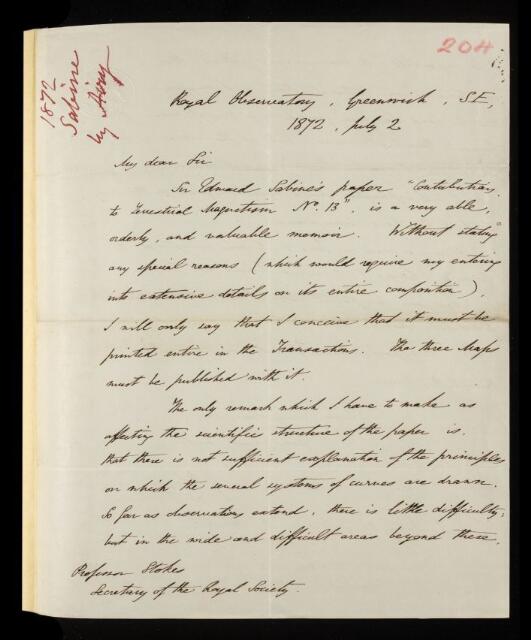 204
1872
Sabine
by Airy
Royal Observatory, Greenwich, S.E,
1872, July 2
My dear Sir
Sir Edward Sabine's paper "Contributions
to Terrestrial Magnetism No. 13", is a very able,
orderly, and valuable memoir. Without stating
any special reasons (which would require my entering
into extensive details on its entire composition),
I will only say that I conceive that it must be
printed entire in the Transactions. The three Maps
must be published with it.
The only remark which I have to make as
affecting the scientific structure of the paper is,
that there is not sufficient explanation of the principles
on which the several systems of curves are drawn.
So far as observations extend, there is little difficulty;
but in the wide and difficult areas beyond these,
Professor Stokes
Secretary of the Royal Society.